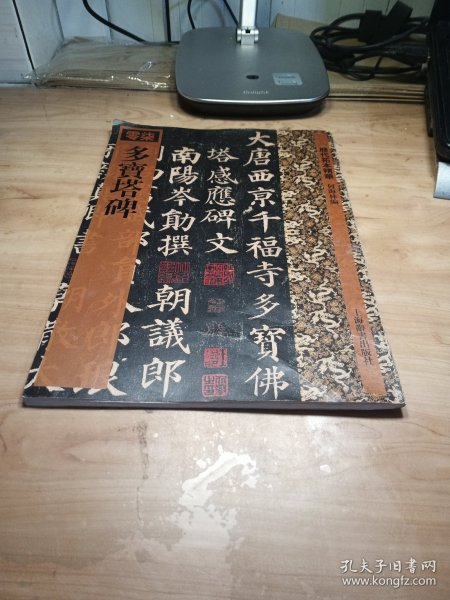 零柒
多寶塔碑
大唐西京千福寺多寶佛
塔感應碑文
南陽岑勛撰 朝議郎
歷代拓本精華
上海辭書出版社
孔夫子旧书网
www.kongfz.com